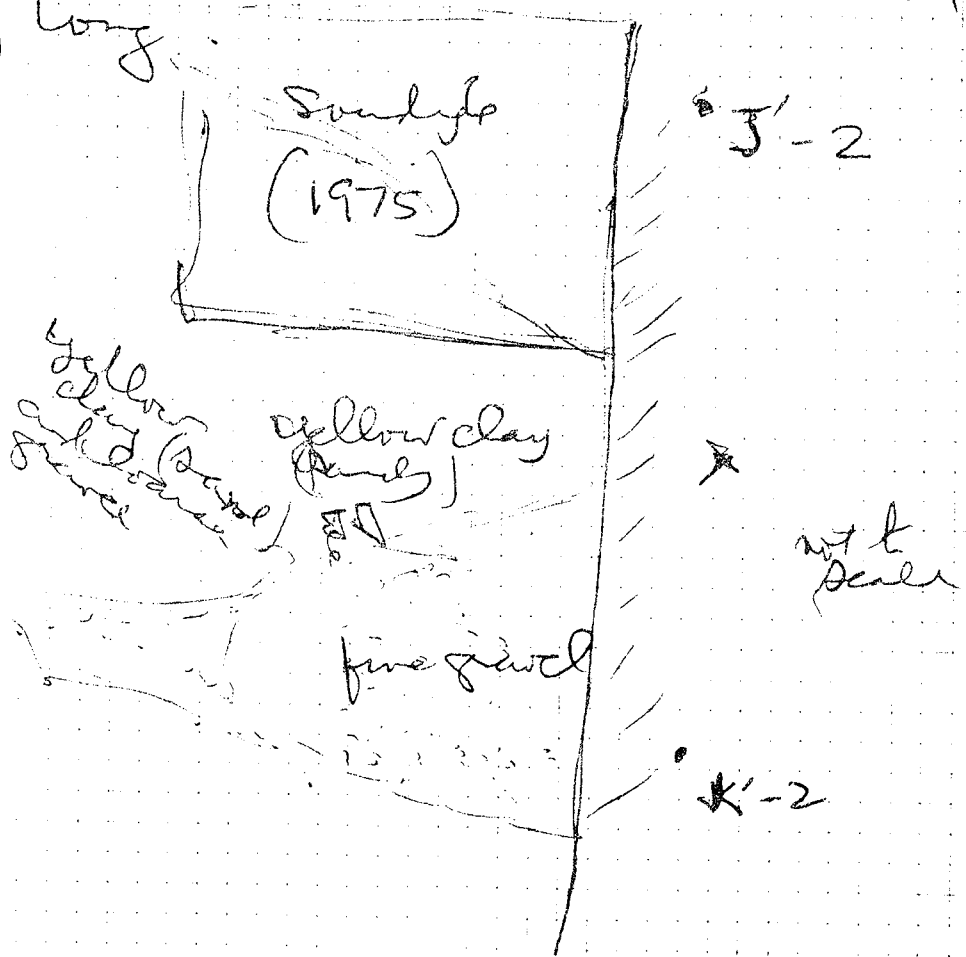 long.
Sondage
(1975)
'J'-2
Yellow
clay (sand
and coarse
gravel
yellow clay
(sandy)
not to
scale
fine gravel
K'-2